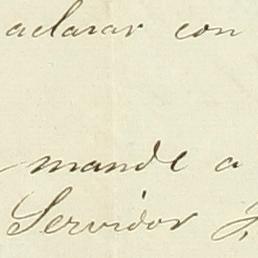 aclarar con
mande a
Servidor